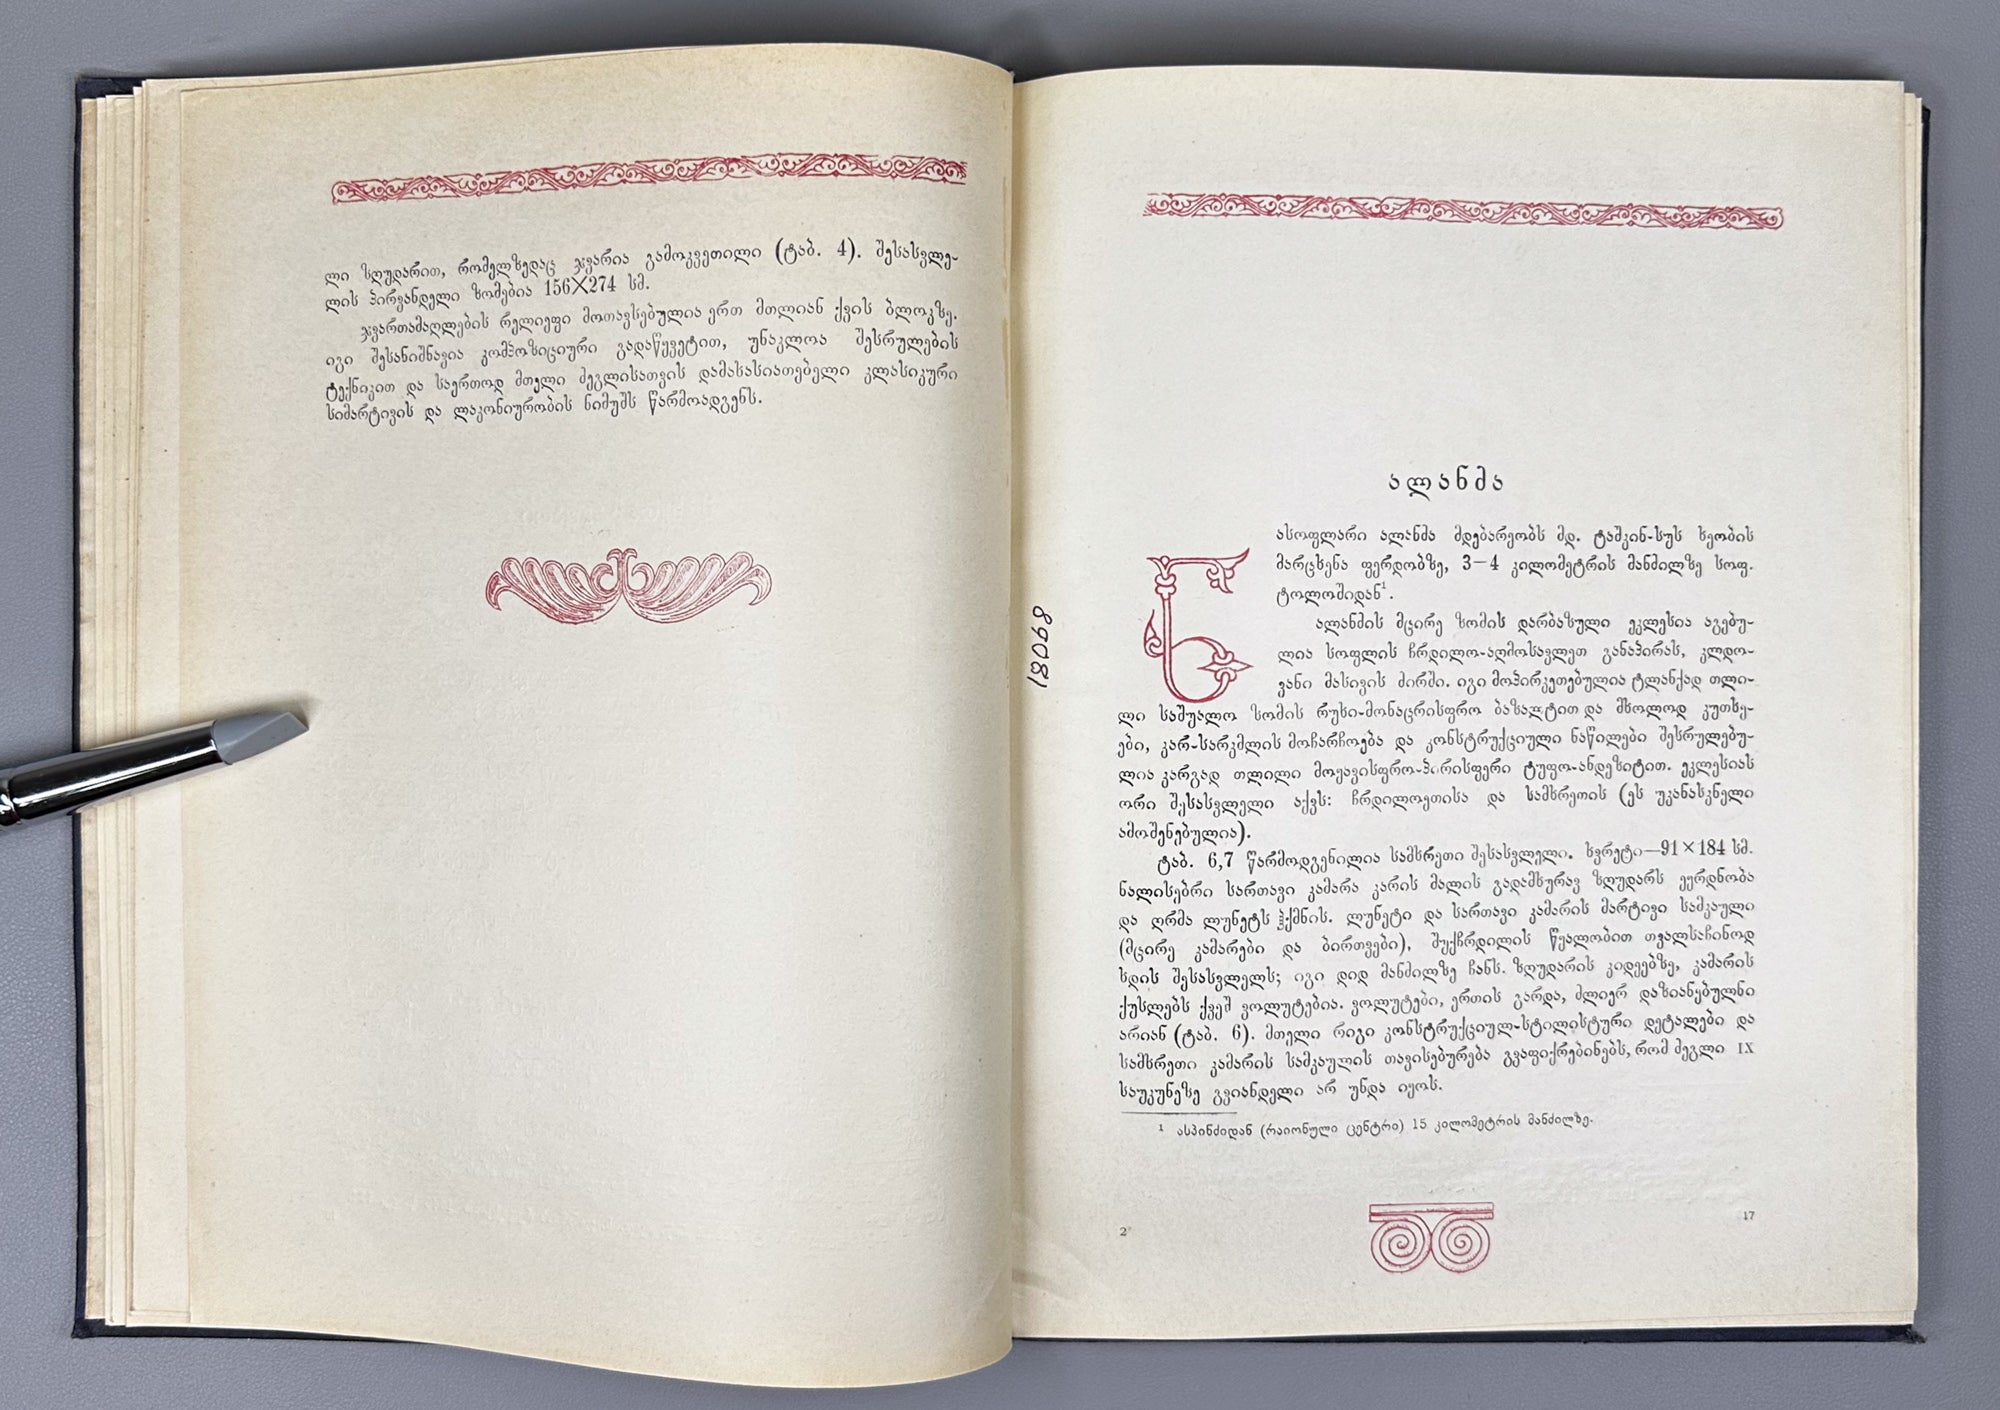 ლი ზღუდარით, რომელზედაც ჯვარია გამოკვეთილი (ტაბ. 4). შესასვლე-
ლის პირვანდელი ზომებია 156×274 სმ.
ჯვართამაღლების რელიეფი მოთავსებულია ერთ მთლიან ქვის ბლოკზე.
იგი შესანიშნავია კომპოზიციური გადაწყვეტით, უნაკლოა შესრულების
ტექნიკით და საერთოდ მთელი ძეგლისათვის დამახასიათებელი კლასიკური
სიმარტივის და ლაკონიურობის ნიმუშს წარმოადგენს.
89081
ალანმა
ნასოფლარი ალანმა მდებარეობს მდ. ტაშკინ-სუს ხეობის
მარცხენა ფერდობზე, 3—4 კილომეტრის მანძილზე სოფ.
ტოლოშიდან¹.
ალანმის მცირე ზომის დარბაზული ეკლესია აგებუ-
ლია სოფლის ჩრდილო-აღმოსავლეთ განაპირას, კლდო-
ვანი მასივის ძირში. იგი მოპირკეთებულია ტლანქად თლი-
ლი საშუალო ზომის რუხი-მონაცრისფრო ბაზალტით და მხოლოდ კუთხე-
ები, კარ-სარკმლის მოჩარჩოება და კონსტრუქციული ნაწილები შესრულებუ-
ლია კარგად თლილი მოყავისფრო-პირისფერი ტუფო-ანდეზიტით. ეკლესიას
ორი შესასვლელი აქვს: ჩრდილოეთისა და სამხრეთის (ეს უკანასკნელი
ამოშენებულია).
ტაბ. 6,7 წარმოდგენილია სამხრეთი შესასვლელი. ხვრეტი—91×184 სმ.
ნალისებრი სართავი კამარა კარის მალის გადამხურავ ზღუდარს ეყრდნობა
და ღრმა ლუნეტს ჰქმნის. ლუნეტი და სართავი კამარის მარტივი სამკაული
(მცირე კამარები და ბირთვები), შუქჩრდილის წყალობით თვალსაჩინოდ
ხდის შესასვლელს; იგი დიდ მანძილზე ჩანს. ზღუდარის კიდეებზე, კამარის
ქუსლებს ქვეშ ვოლუტებია. ვოლუტები, ერთის გარდა, ძლიერ დაზიანებულნი
არიან (ტაბ. 6). მთელი რიგი კონსტრუქციულ-სტილისტური დეტალები და
სამხრეთი კამარის სამკაულის თავისებურება გვაფიქრებინებს, რომ ძეგლი IX
საუკუნეზე გვიანდელი არ უნდა იყოს.
¹ ასპინძიდან (რაიონული ცენტრი) 15 კილომეტრის მანძილზე.
2
17